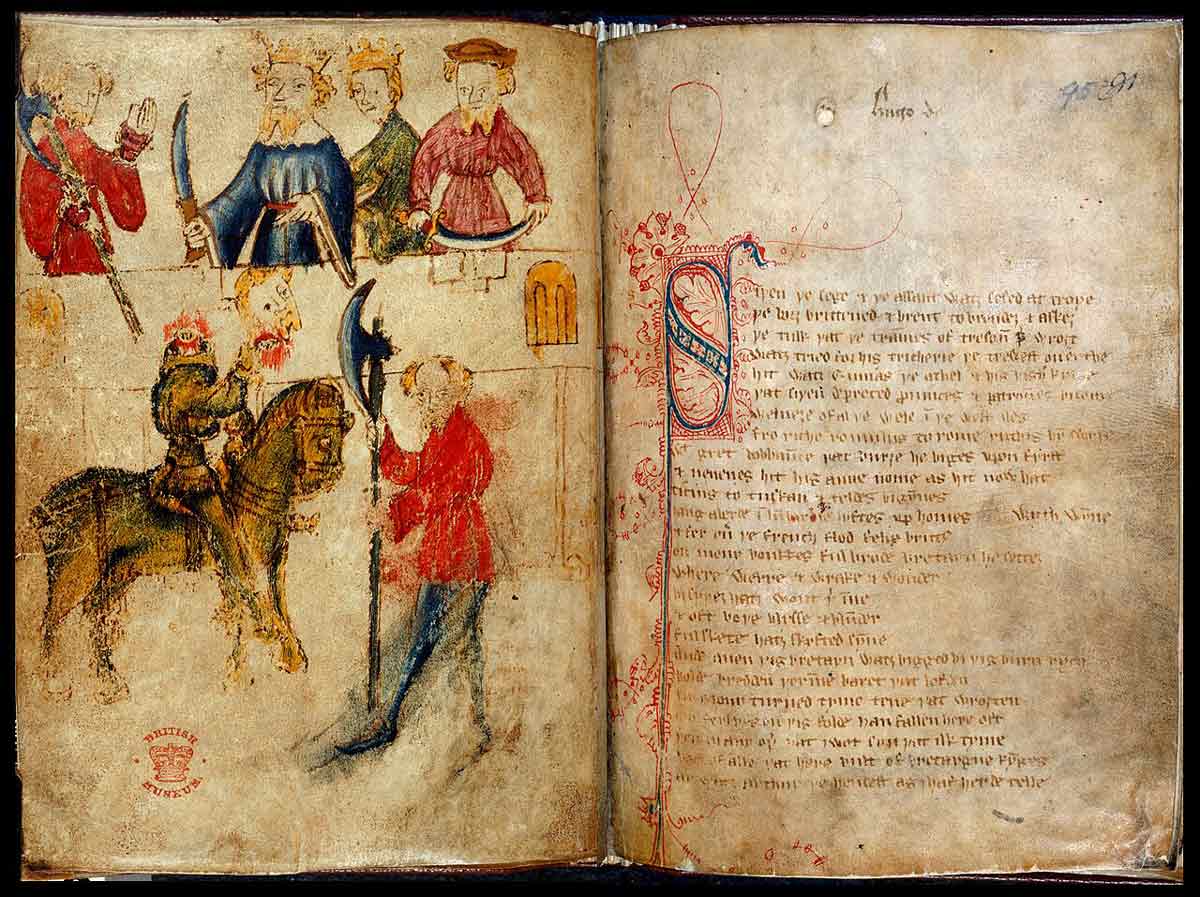 BRITISH
MUSEUM
95 91
Hugo de
Siþen þe sege & þe assaut watz sesed at troye
þe borȝ brittened & brent to brondez & askez
þe tulk þat þe trammes of tresoun þ wroȝt
watz tried for his tricherie þe trewest on erthe
hit watz Ennias þe athel & his highe kynde
þat siþen depreced prouinces & patrounes bicome
welneȝe of al þe wele ī þe west iles
fro riche romulus to rome ricchis hym swyþe
gret bobbaūce þat burȝe he biges vpon fyrst
& neuenes hit his aune nome as hit now hat
ticius to tuskan & teldes bigȳnes
langaberde ī lumbardie lyftes vp homes wyth wȳne
& fer oū þe french flod felix brutus
on mony bonkkes ful brode bretayn he settez
where werre & wrake & wonder
bi syþez hatz wont þ īne
& oft boþe blysse & blunder
ful skete hatz skyfted sȳne
Ande quen þis bretayn watz bigged bi þis burn rych
bolde bredden þerīne baret þat lofden
in mony turned tyme tene þat wroȝten
mo ferlyes on þis folde han fallen here oft
þen in any oþ þat I wot syn þat ilk tyme
bot of alle þat here bult of bretaygne kynges
ay watz arthur þe hendest as I haf herde telle